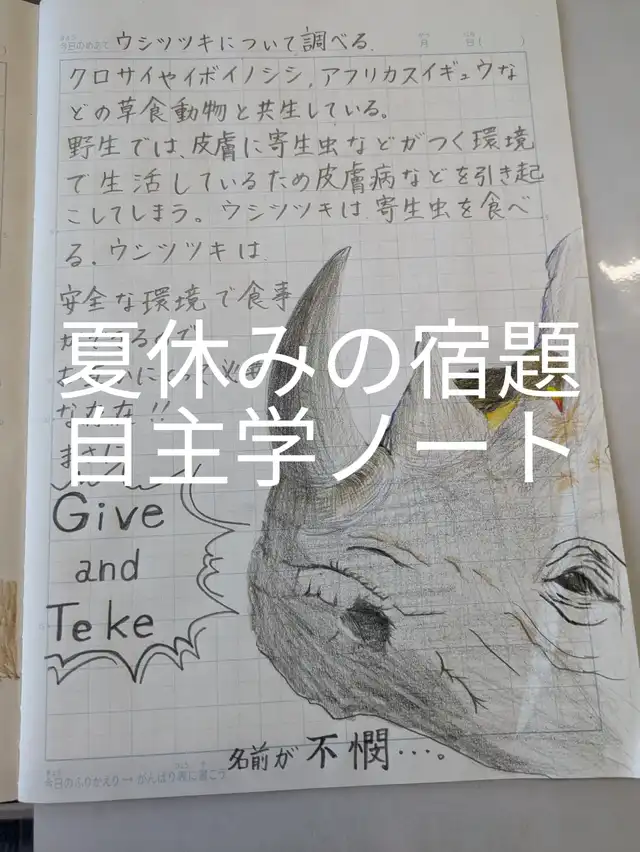 今日のめあて ウシツツキについて調べる。
月 日( )
クロサイやイボイノシシ,アフリカスイギュウな
どの草食動物と共生している。
野生では、皮膚に寄生虫などがつく環境
で生活しているため皮膚病などを引き起
こしてしまう。ウシツツキは寄生虫を食べ
る。ウシツツキは
安全な環境で食事
夏休みの宿題
なカ在!!
自主学ノート
まさに
Give
and
Teke
名前が不憫…。
今日のふりかえり→がんばり表に書こう